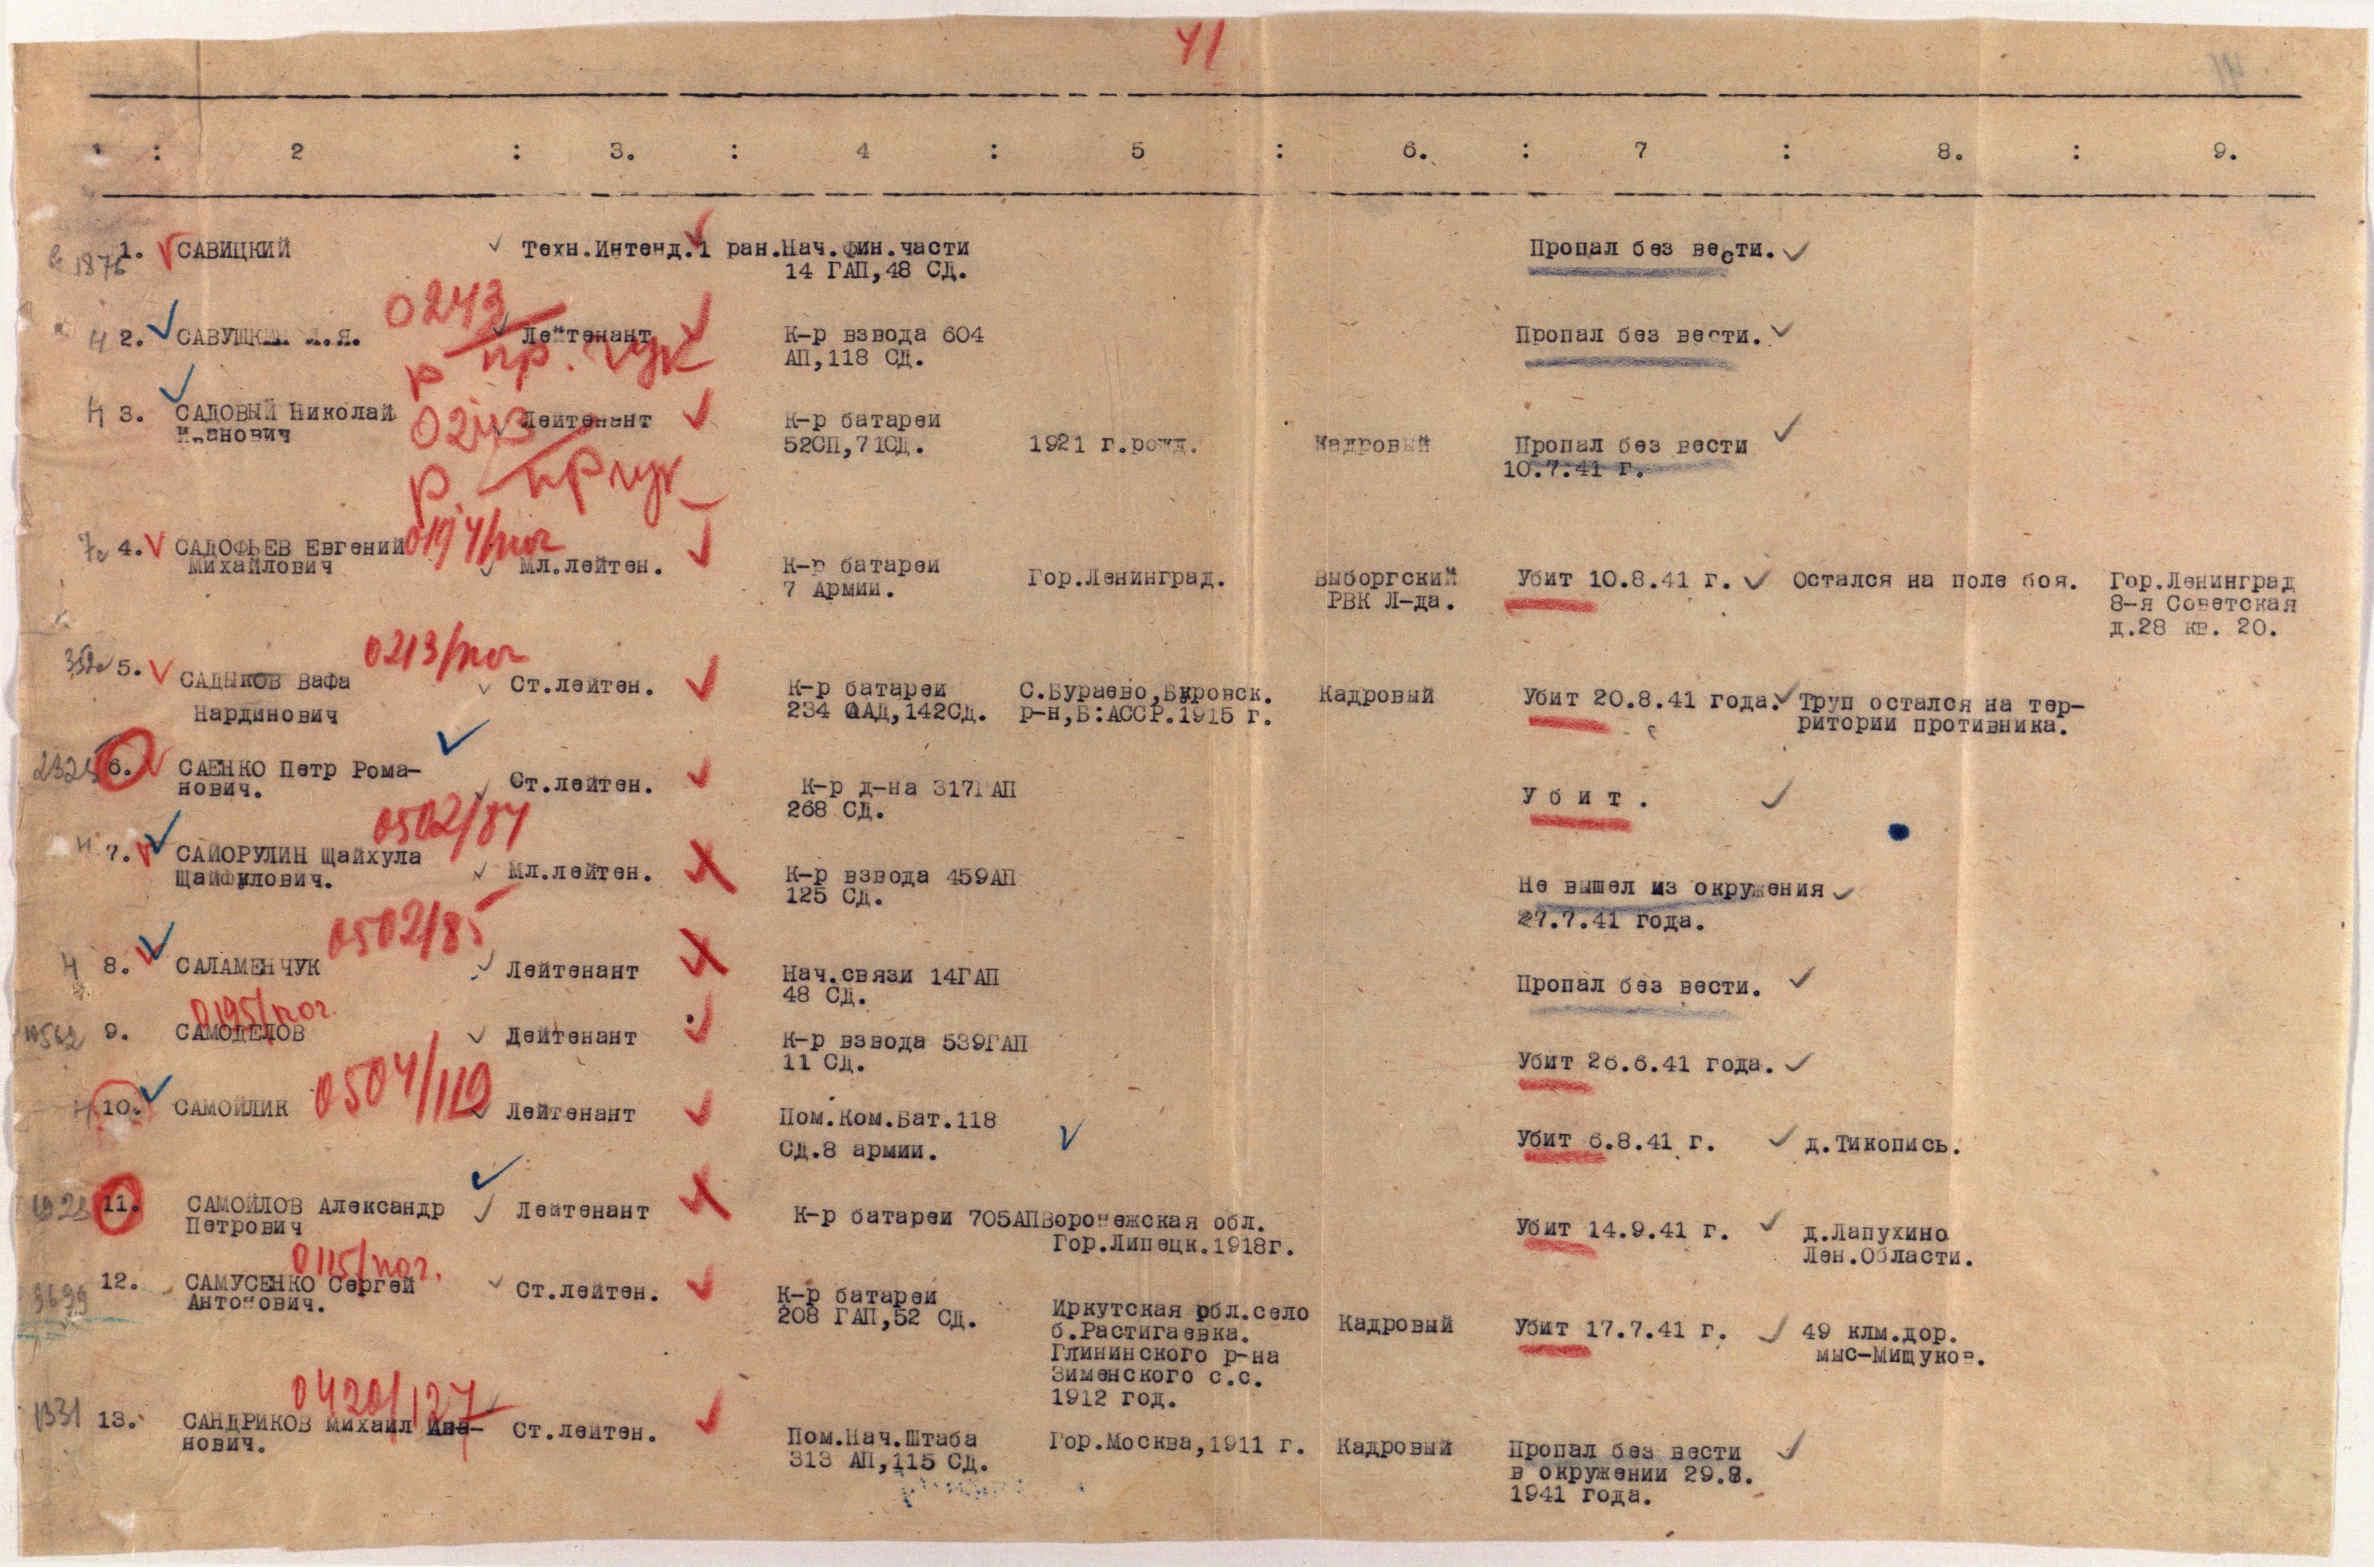 41
: 2 : 3. : 4 : 5 : 6. : 7 : 8. : 9.
1876 1. САВИЦКИЙ Техн.Интенд.1 ран.Нач.фин.части Пропал без вести.
14 ГАП,48 СД.
0243
Н 2. Лейтенант К-р взвода 604 Пропал без вести.
АП,118 СД.
р пр. гук
Н 3. САДОВЫЙ Николай Лейтенант К-р батареи
0243
Иванович 52СП,71СД. 1921 г.рожд. Кадровый Пропал без вести
10.7.41 г.
р. пр гук
4. САДОФЬЕВ Евгений
Михайлович Мл.лейтен. К-р батареи Гор.Ленинград. Выборгский Убит 10.8.41 г. Остался на поле боя. Гор.Ленинград
7 Армии. РВК Л-да. 8-я Советская
д.28 кв. 20.
0213/пог
5. САДЫКОВ Вафа Ст.лейтен. К-р батареи С.Бураево,Буровск. Кадровый Убит 20.8.41 года. Труп остался на тер-
Нардинович 234 ОАД,142СД. р-н,Б:АССР.1915 г. ритории противника.
6. САЕНКО Петр Рома- Ст.лейтен. К-р д-на 317ГАП У б и т .
нович. 268 СД.
0502/84
Н 7. САЙОРУЛИН Щайхула Мл.лейтен. К-р взвода 459АП Не вышел из окружения
Щайфулович. 125 СД. 27.7.41 года.
0502/85
Н 8. САЛАМЕНЧУК Лейтенант Нач.связи 14ГАП Пропал без вести.
48 СД.
0195/пог.
9. САМОДЕЛОВ Дейтенант К-р взвода 539ГАП Убит 26.6.41 года.
11 СД.
0504/119
10. САМОЙЛИК Лейтенант Пом.Ком.Бат.118 Убит 6.8.41 г. д.Тикопись.
СД.8 армии.
11. САМОЙЛОВ Александр Лейтенант К-р батареи 705АПВоронежская обл. Убит 14.9.41 г. д.Лапухино
Петрович Гор.Липецк.1918г. Лен.Области.
0115/пог.
3699 12. САМУСЕНКО Сергей Ст.лейтен. К-р батареи Иркутская обл.село Кадровый Убит 17.7.41 г. 49 клм.дор.
Антонович. 208 ГАП,52 СД. б.Растигаевка. мыс-Мищуков.
Глининского р-на
Зименского с.с.
1912 год.
0420/127
1331 13. САНДРИКОВ Михаил Ива- Ст.лейтен. Пом.Нач.Штаба Гор.Москва,1911 г. Кадровый Пропал без вести
нович. 313 АП,115 СД. в окружении 29.8.
1941 года.